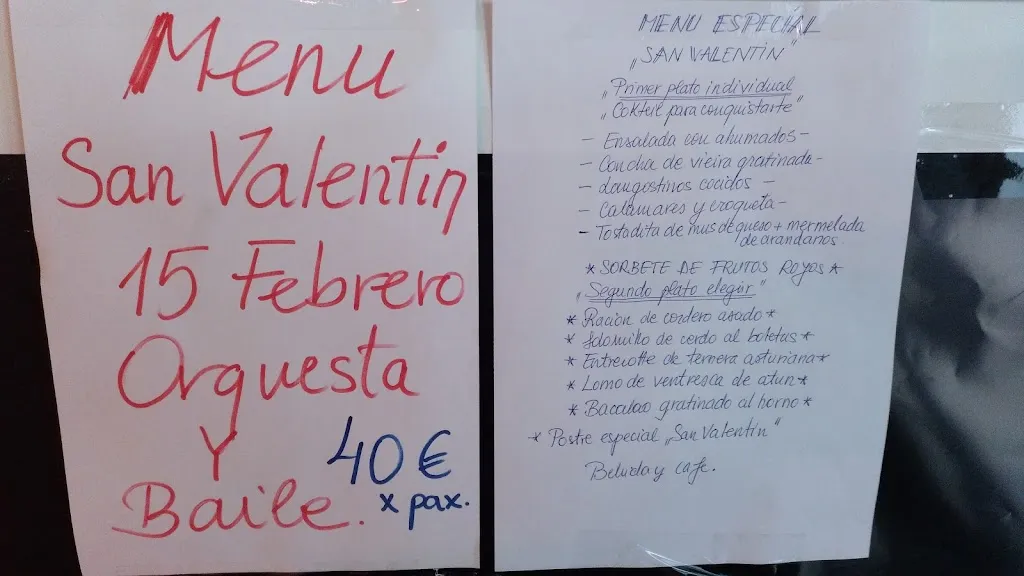 Menu
San Valentin
15 Febrero
Orquesta
Y
Baile.
40 €
x pax.
MENU ESPECIAL
„SAN VALENTIN"
„Primer plato individual
„Coktell para conquistarte"
- Ensalada con ahumados -
- Concha de vieira gratinada -
- Langostinos cocidos -
- Calamares y croqueta -
- Tostadita de mus de queso + mermelada
de arandanos.
* SORBETE DE FRUTOS ROYOS *
„Segundo plato elegir"
* Racion de cordero asado *
* Solomillo de cerdo al boletus *
* Entrecotte de ternera asturiana *
* Lomo de ventresca de atun *
* Bacalao gratinado al horno *
* Postre especial „San Valentin"
Bebida y cafe.